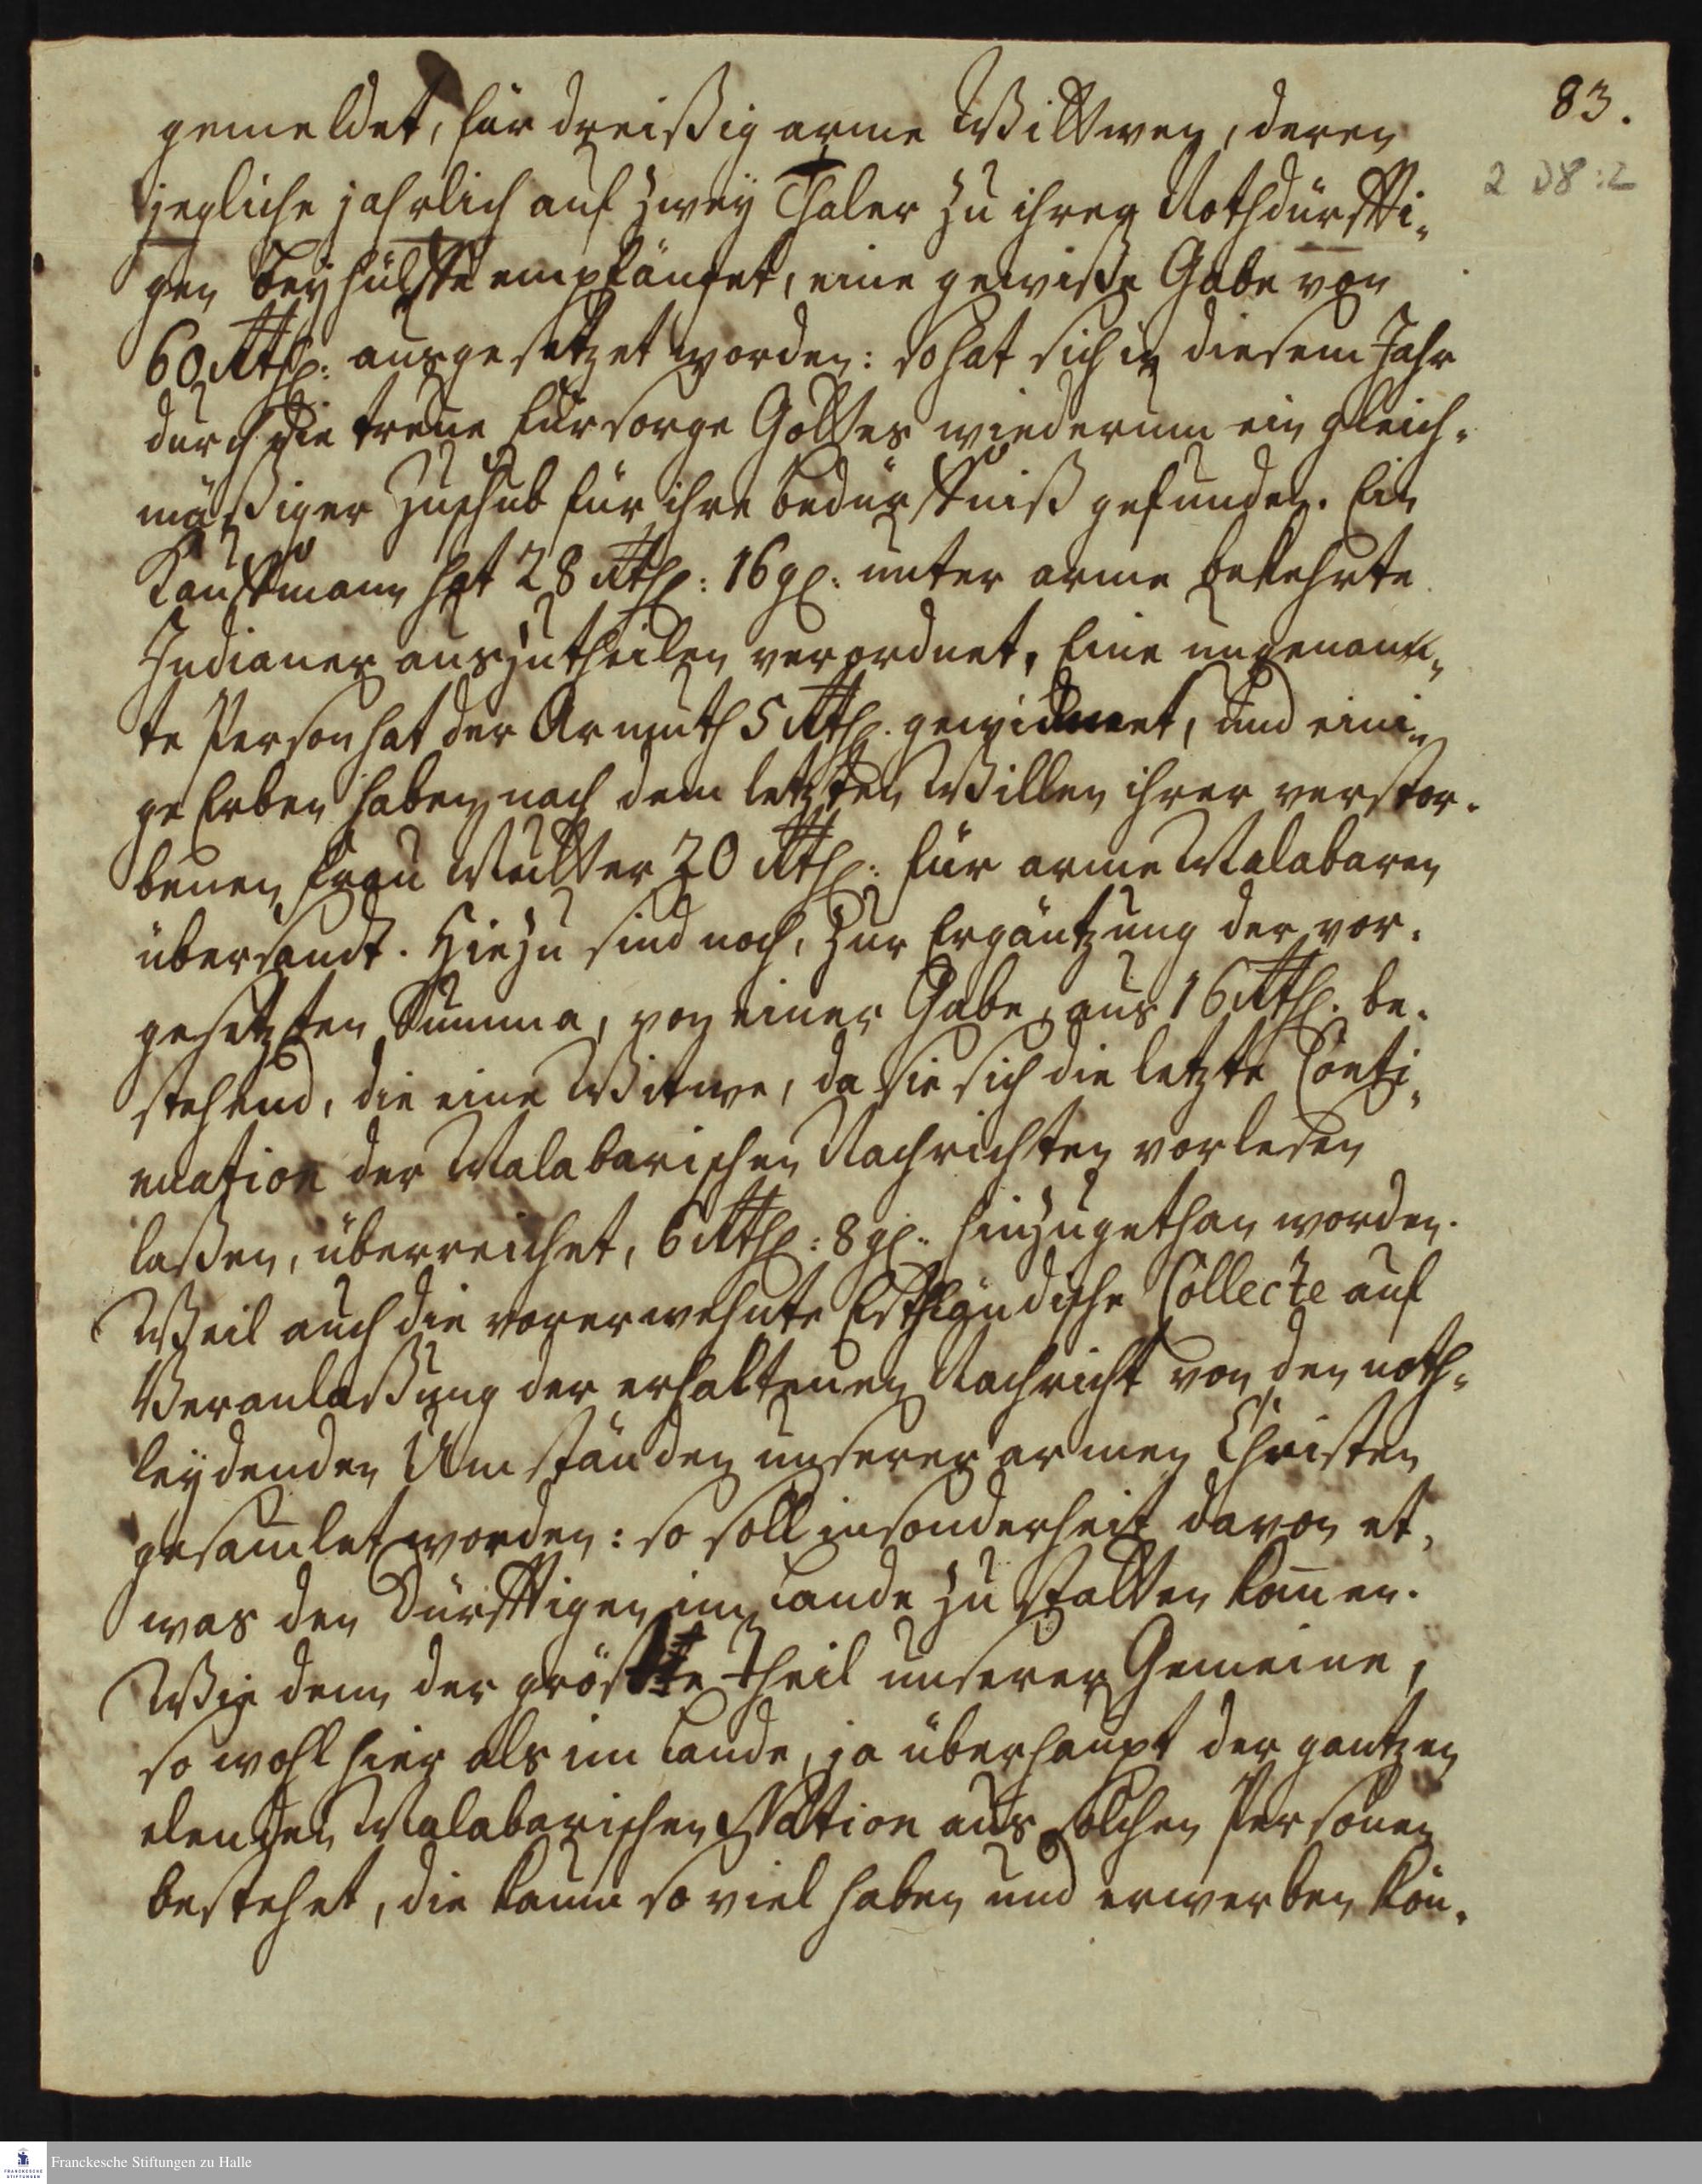 83.
2 D8:2
gemeldet, für dreißig arme Wittwen, deren
jegliche jährlich auf zwey Thaler zu ihrer Nothdürffti-
gen Beyhülffe empfänget, eine gewiße Gabe von
60 Rthl: ausgesetzet worden: so hat sich in diesem Jahr
durch die treue Fürsorge Gottes wiederum ein gleich-
mäßiger Zuschub für ihre Bedürffniß gefunden. Ein
Kauffmann hat 28 Rthl: 16 gl: unter arme bekehrte
Indianer auszutheilen verordnet, Eine ungenann-
te Person hat der Armuth 5 Rthl. gewidmet, und eini-
ge Erben haben nach dem letzten Willen ihrer verstor-
benen Frau Mutter 20 Rthl: für arme Malabaren
übersandt. Hiezu sind noch, zur Ergäntzung der vor-
gesetzten Summa, von einer Gabe, aus 16 Rthl. be-
stehend, die eine Witwe, da sie sich die letzte Conti-
nuation der Malabarischen Nachrichten vorlesen
laßen, überreichet, 6 Rthl: 8 gl: hinzugethan worden.
Weil auch die vorerwehnte Esthländische Collecte auf
Veranlaßung der erhaltenen Nachricht von den noth-
leydenden Umständen unserer armen Christen
gesamlet worden: so soll insonderheit davon et-
was den Dürfftigen im Lande zu statten kommen.
Wie denn der gröste Theil unserer Gemeine,
so wohl hier als im Lande, ja überhaupt der gantzen
elenden Malabarischen Nation aus solchen Personen
bestehet, die kaum so viel haben und erwerben kön-
Franckesche Stiftungen zu Halle
FRANCKESCHE STIFTUNGEN